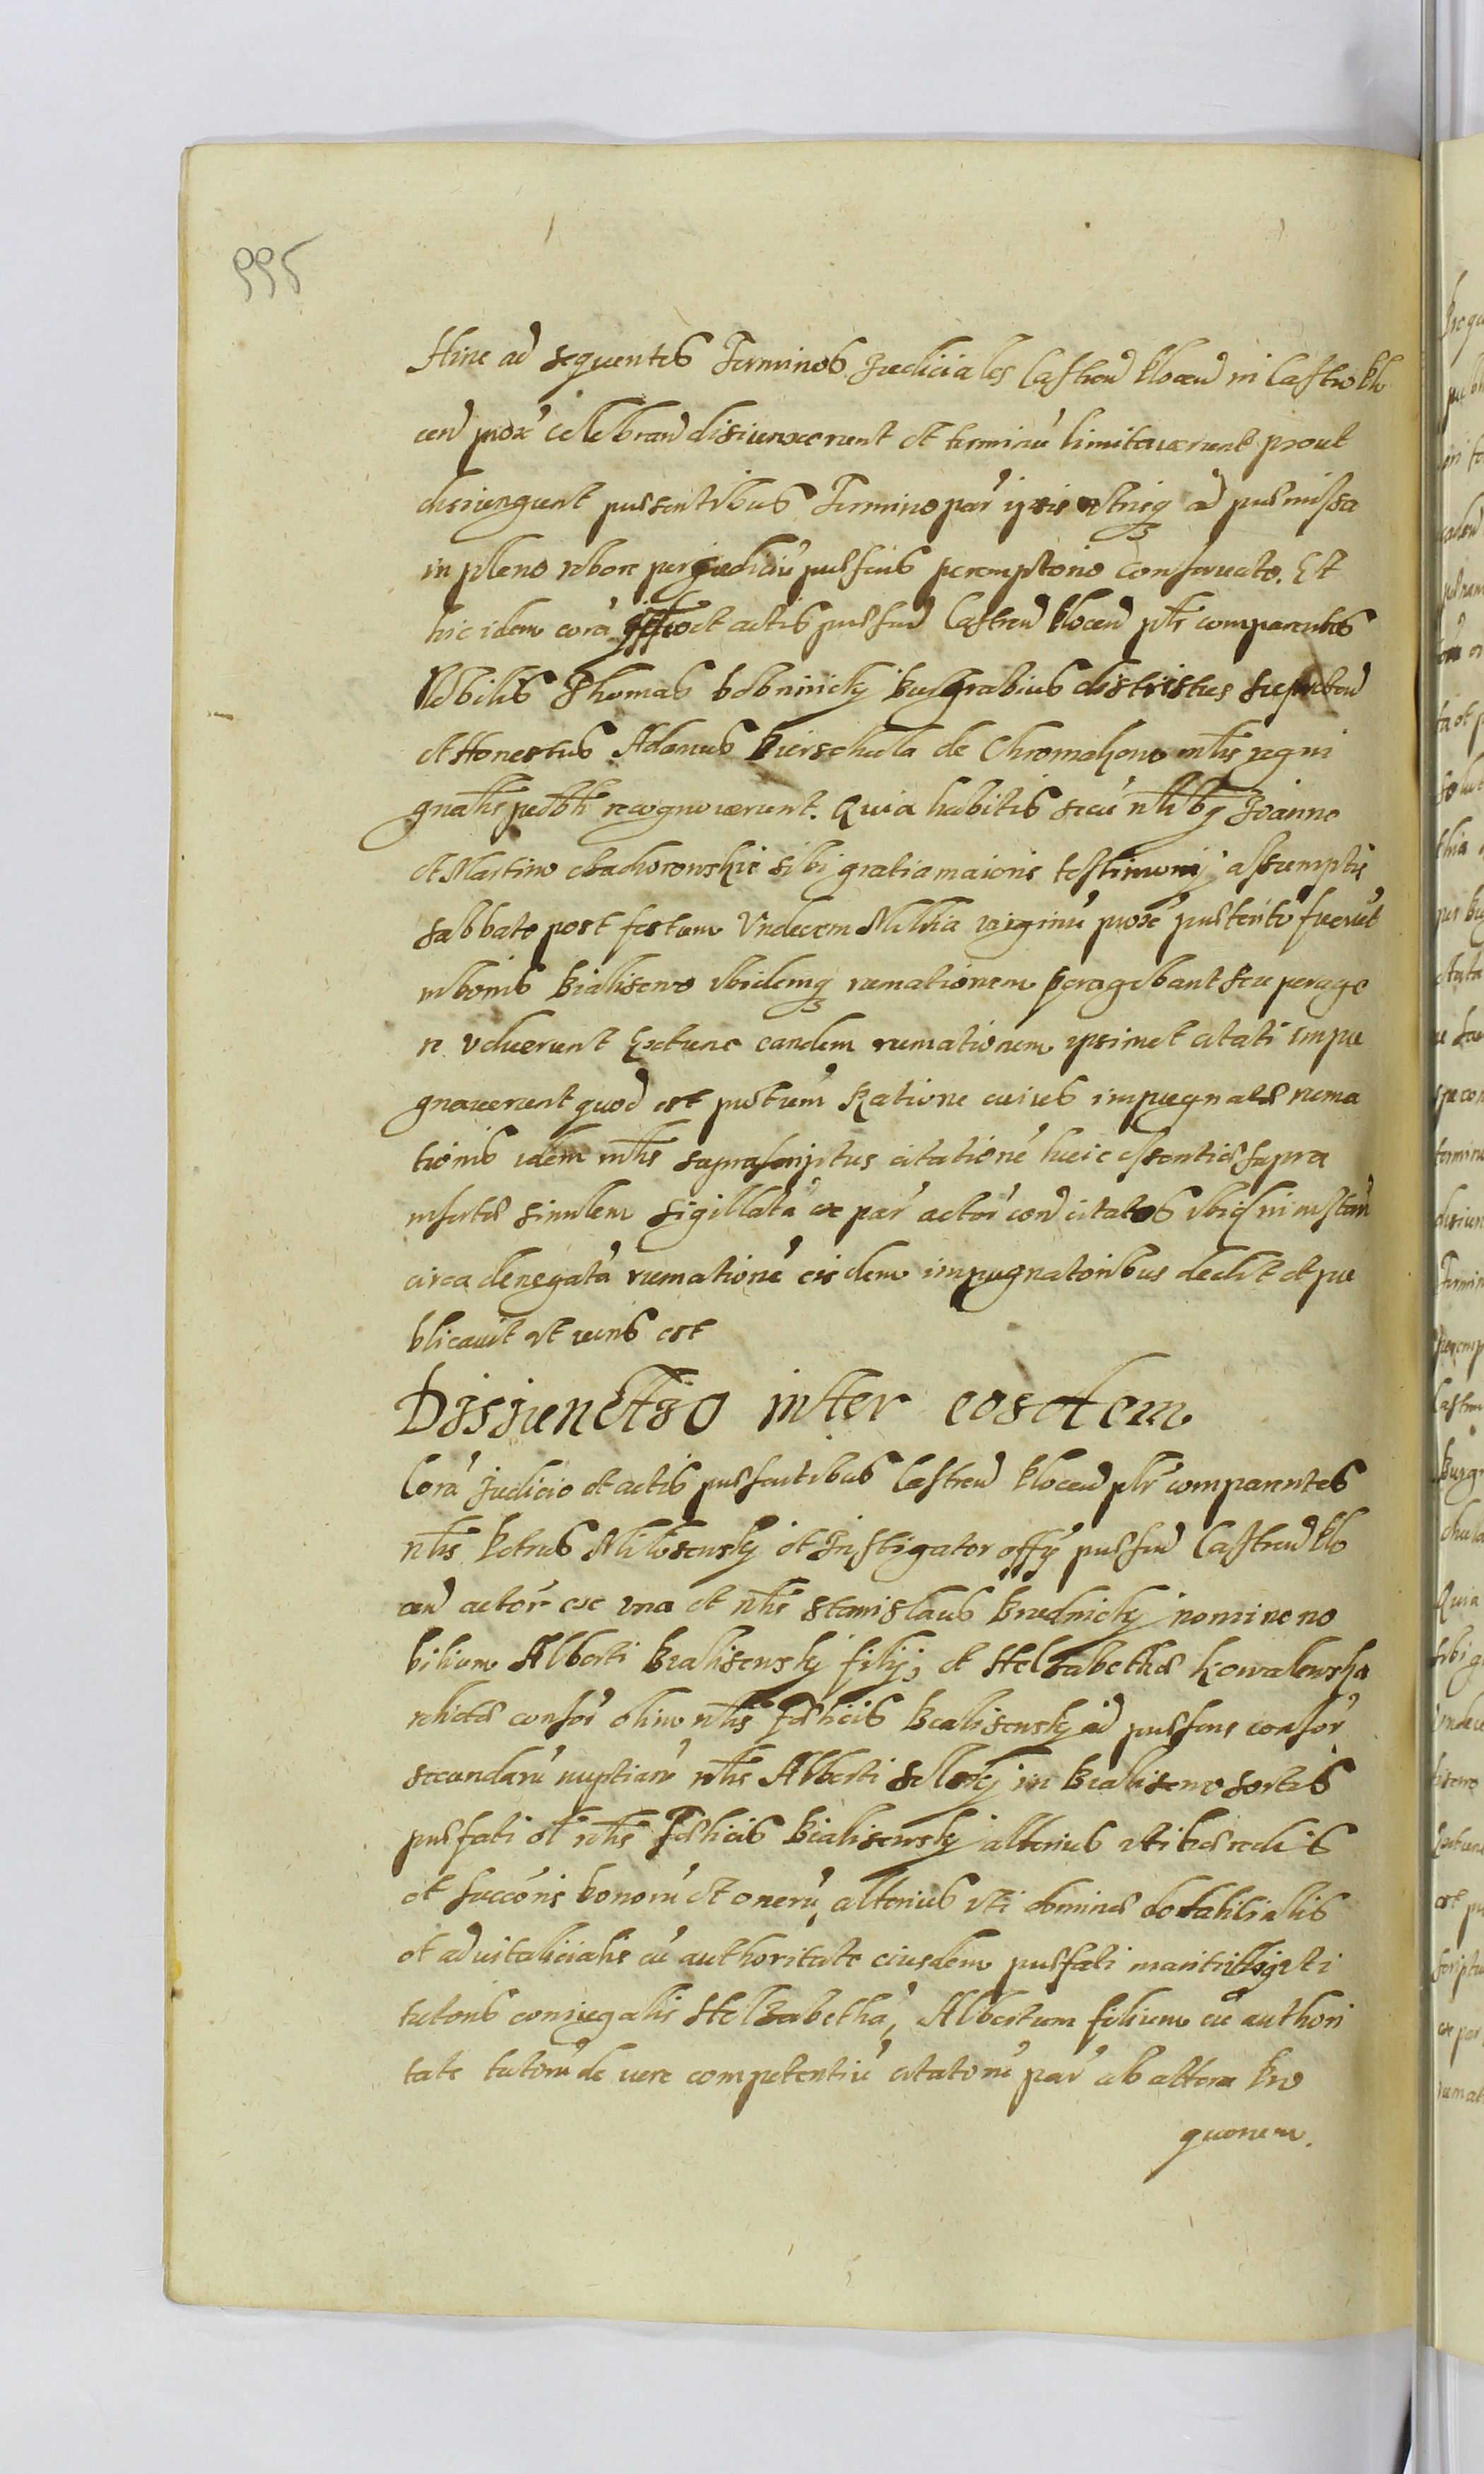 995
Hinc ad sequentes Terminos Judiciales Castren Plocen in Castro Plo
cen prox celebran disiunxerunt et terminu limitauerunt prout
disiungunt praesentibus Termino par ipsis utrisq ad praemissa
in pleno robore per Judiciu praesens peremptorie conseruato. Et
hic idem cora Offio et actis praesen Castren Plocen pltr comparentes
Nobilis Thomas Bobrinicky Burgrabius districtus
et Honestus Adamus Pierschala de Chromakowo mtlis regni
gnalis recognouerunt. Quia habitis secu nlibq Joanne
et Martino Chachorowskie sibi gratia maioris testimonij assumptis
sabbato post festum Undecem Millia virginu prox praeterito fueru't
in bonis Bialiseno ibidemq rumationem peragebant seu perage
re voluerunt Extunc eandem rumationem ipsimet citati impu
gnauerunt quod est Ratione cuius impugnatae ruma
tionis idem mtlis suprascriptus citatione huic essentiae supra
insertae similem sigillata ex par actor con citatos ibid in instan
circa denegata rumatione eisdem impugnatoribus dedit et pu
blicauit ut iuris est
Disiunctio inter eosdem
Cora Judicio et actis praesentibus Castren Plocen pltr comparentes
nlis Petrus Milosensky et Instigator offy praesen Castren Plo
cen actor ex una et nlis Stanislaus Brudnicky nomine no
bilium Alberti Bialisensky filij, et Helzabethae Kowalewska
relictae consor olim nlis Foelicis Bialisensky ad praesens consor
secundaru nuptiaru nlis Alberti in Bialiseno sortis
praefati ol nlis Foelicis Bialisensky alterius uti haeredis
et succoris bonoru et oneru, alterius uti dominae dotalitialis
et aduitalicialis cu authoritate eiusdem praefati mariti uti
tutoris coniugalis Helzabetha, Albertum filium cu authori
tate tutoru de iure competentiu citatoru par ab altera Pro
quorum.